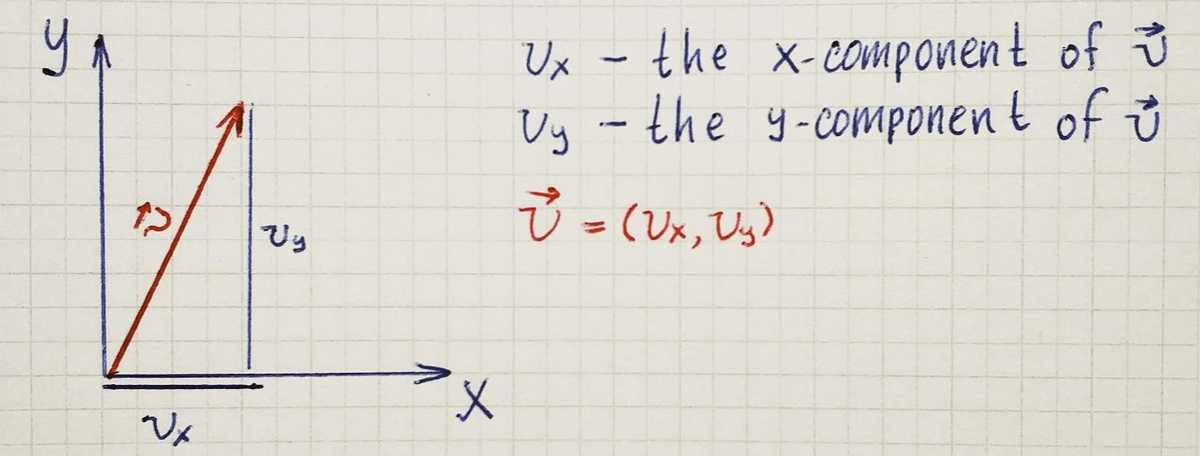 y
v⃗
vy
x
vx
vx – the x-component of v⃗
vy – the y-component of v⃗
v⃗ = (vx, vy)